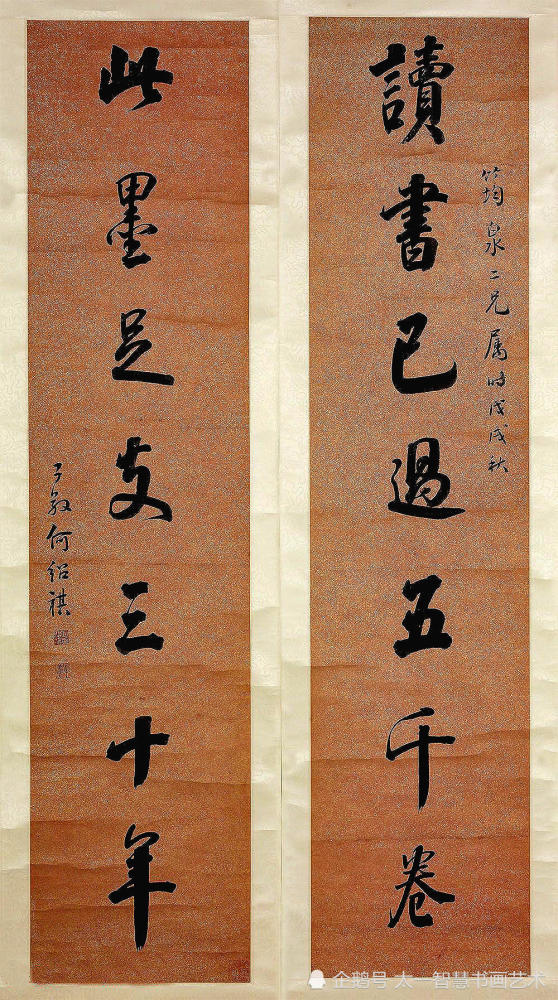 讀書已過五千卷
筠泉二兄属時戊戌秋
此墨足支三十年
子敦何紹祺
企鹅号 太一智慧书画艺术